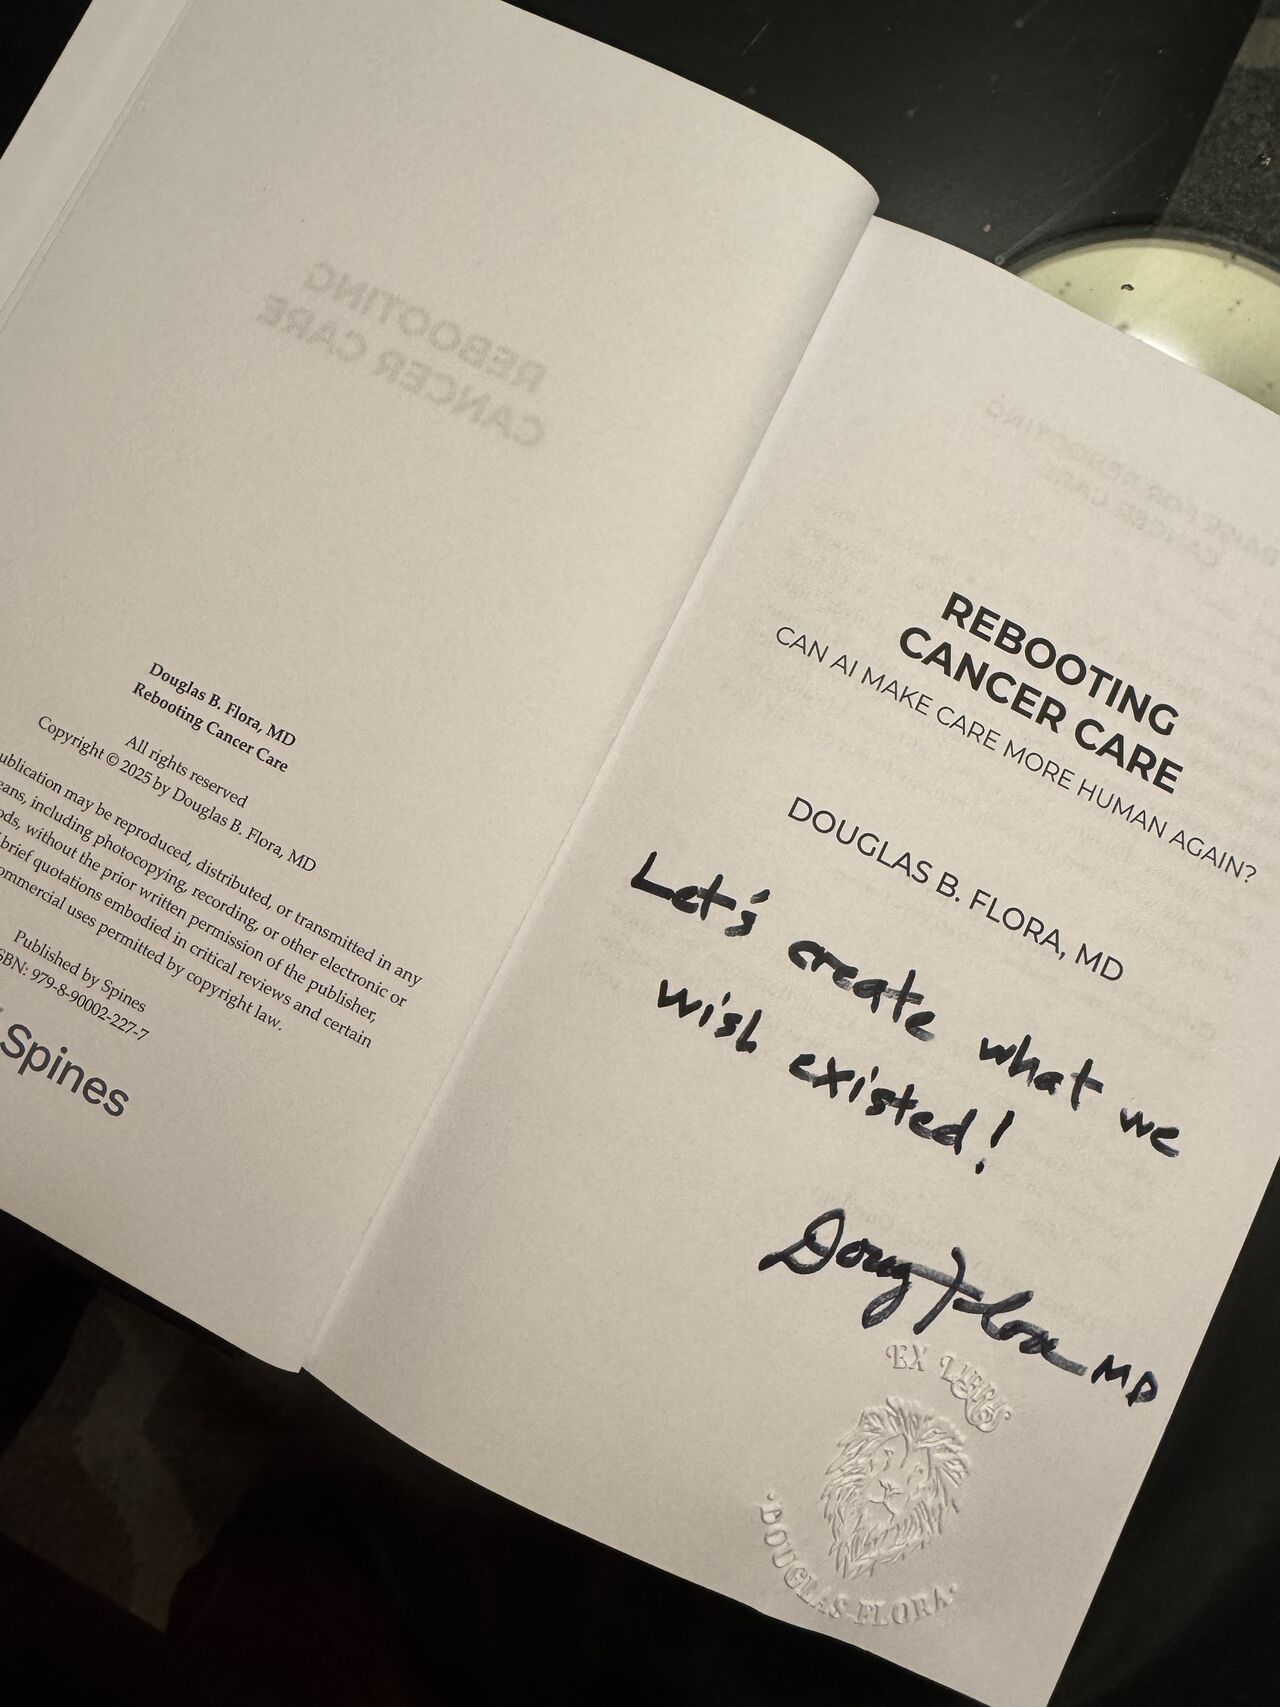 REBOOTING
CANCER CARE
Douglas B. Flora, MD
Rebooting Cancer Care
All rights reserved
Copyright © 2025 by Douglas B. Flora, MD
publication may be reproduced, distributed, or transmitted in any
including photocopying, recording, or other electronic or
without the prior written permission of the publisher,
brief quotations embodied in critical reviews and certain
uses permitted by copyright law.
Published by Spines
ISBN: 979-8-90002-227-7
Spines
FOR REBOOTING
CANCER CARE
REBOOTING
CANCER CARE
CAN AI MAKE CARE MORE HUMAN AGAIN?
DOUGLAS B. FLORA, MD
Let's create what we
wish existed!
Doug Flora MD
EX LIBRIS
·DOUGLAS FLORA·